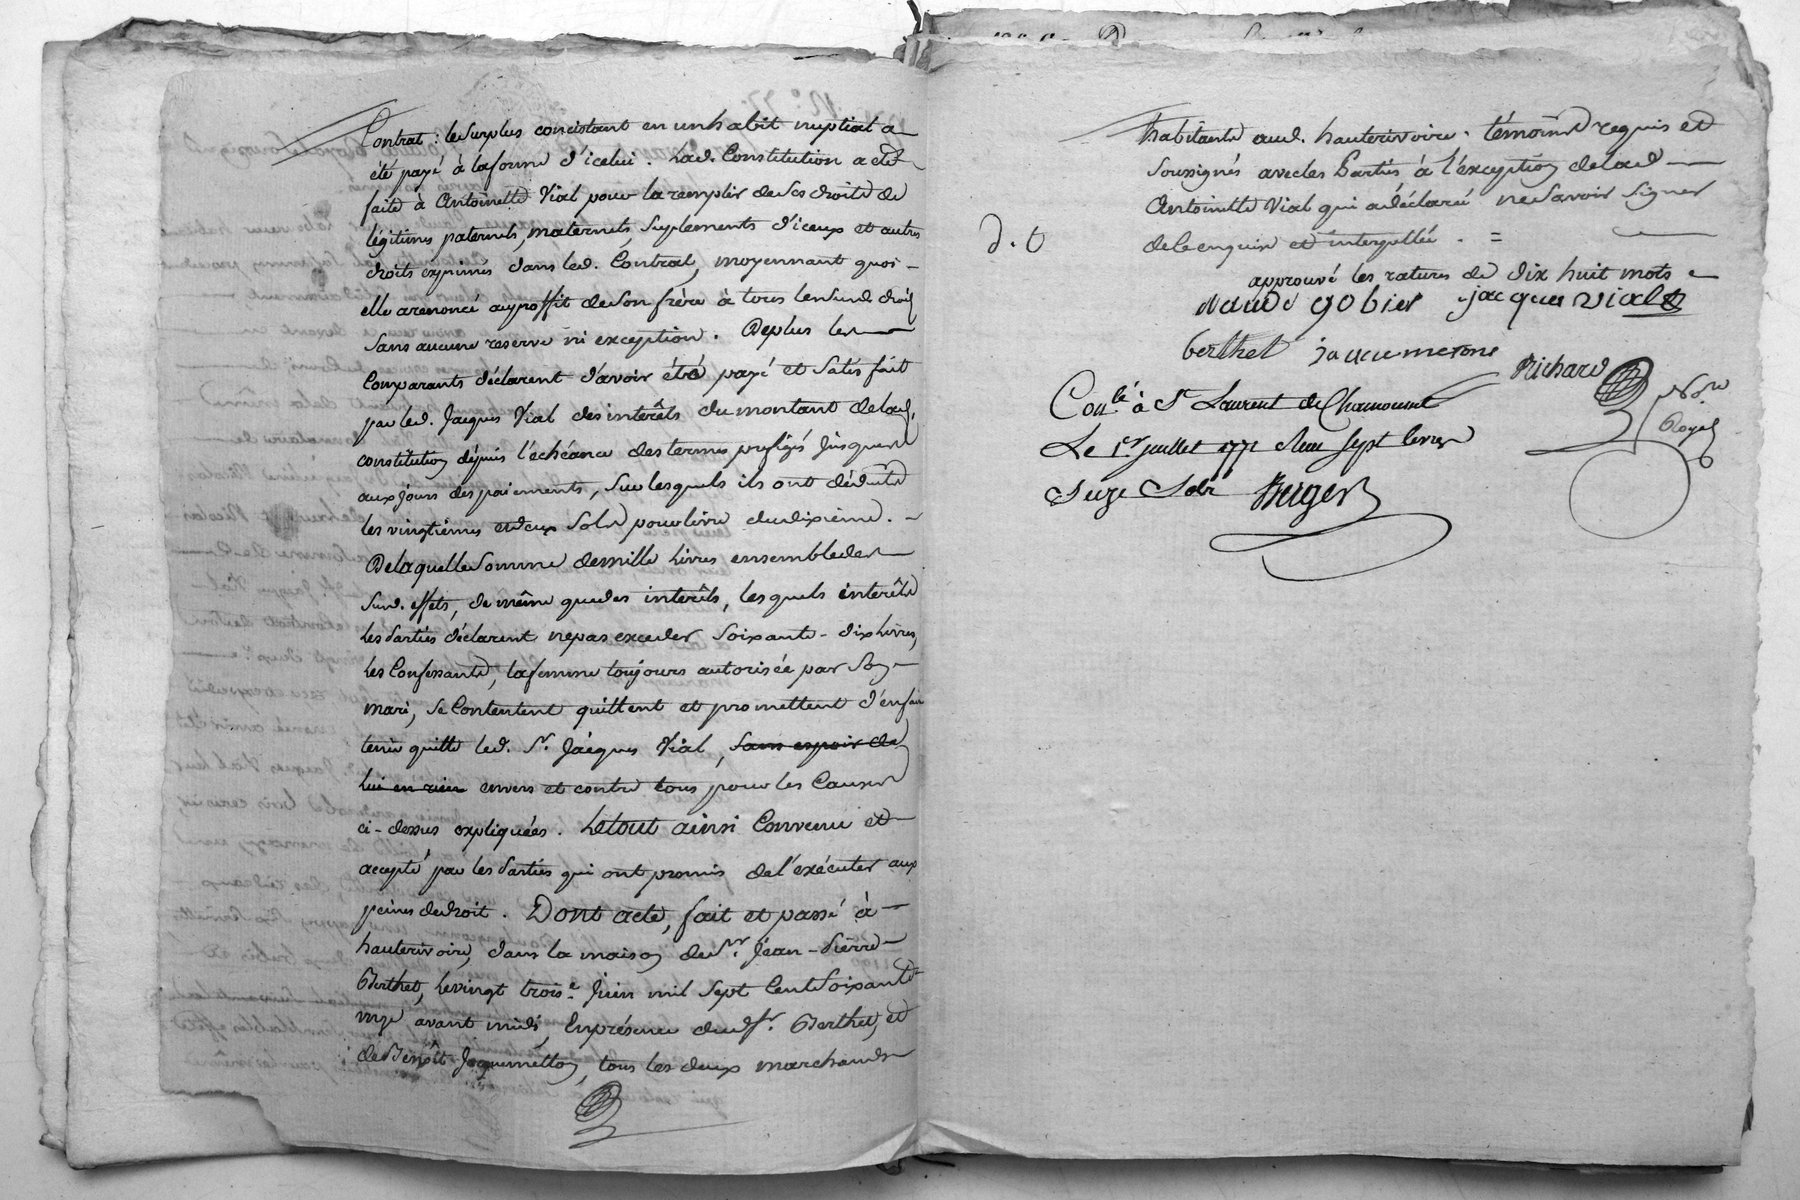 Contrat : le Surplus concistant en un habit nuptial a
été payé à la forme d'icelui . Lad. Constitution a été
faite à Antoinette Vial pour la remplir de Ses droits de
légitimes paternels, maternels, Suplements d'iceux et autres
droits exprimés dans led. Contrat, moyennant quoi
elle a renoncé au proffit de Son frère à tous lesusd. droits
Sans aucune reserve ni exception . De plus les
Comparants déclarent d'avoir été payé et Satisfait
par led. Jacques Vial des interêts du montant de lad.
constitution depuis l'échéance des termes prefigés jusques
aux jours des paiements, Sur lesquels ils ont déduits
les vingtièmes et deux Sols pour livre du dixième .
De laquelle Somme de mille livres ensemble des
Susd. effets, de même que des interêts, lesquels interêts
les Parties déclarent ne pas exceder Soixante - dix livres,
les Confessants, la femme toujours autorisée par Son
mari, Se Contentent quittent et promettent d'en faire
tenir quitte led. Sr. Jacques Vial, Sans espoir de
lui en rien envers et contre tous pour les Causes
ci - dessus expliquées . Le tout ainsi Convenu et
accepté par les Parties qui ont promis de l'exécuter aux
peines de droit . Dont acte, fait et passé à
hauterivoire, dans la maison de Sr. Jean - Pierre
Berthet, le vingt trois.e Juin mil Sept Cent Soixante
onze avant midi, En présence dud. Sr. Berthet, et
de Benoît Jaquemetton, tous les deux marchands
habitants aud. hauterivoire . témoins requis et
Soussignés avec les Parties à l'exception de lad.
Antoinette Vial qui a déclaré ne Savoir Signer
de ce enquise et interpellée . =
approuvé les ratures de dix huit mots
claude gobier jacques vial
berthet jaquemeton
Richard
Nore
Royal
Conlé à St Laurent de Chamousset
Le 1er juillet 1771 Reçu Sept livres
Seize Sols Berger